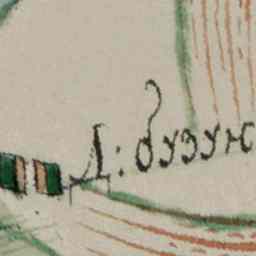 Д: бузун